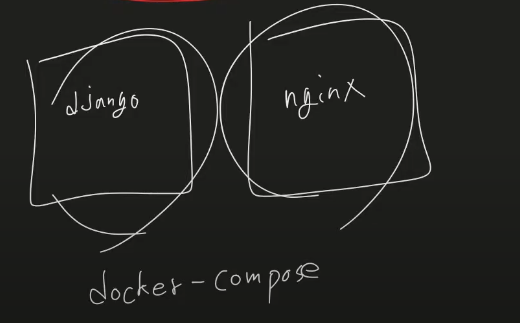 django
nginx
docker-compose